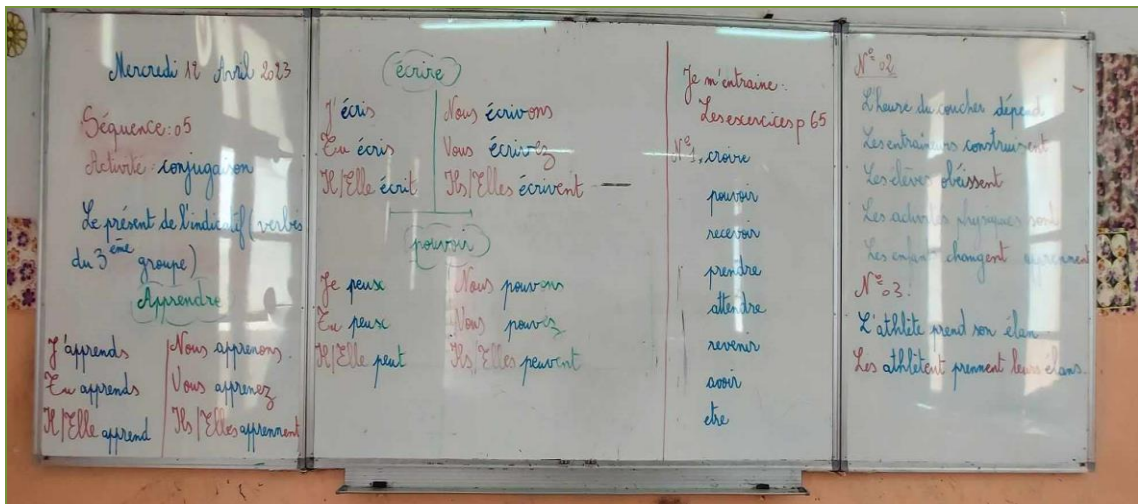 Mercredi 12 Avril 2023
Séquence : 05
Activité : conjugaison
Le présent de l'indicatif (verbes
du 3ème groupe)
Apprendre
J'apprends Nous apprenons.
Tu apprends Vous apprenez
Il/Elle apprend Ils/Elles apprennent
écrire
J'écris Nous écrivons
Tu écris Vous écrivez
Il/Elle écrit Ils/Elles écrivent
pouvoir
Je peux Nous pouvons
Tu peux Vous pouvez
Il/Elle peut Ils/Elles peuvent
Je m'entraine :
Les exercices p 65
N°1, croire
pouvoir
recevoir
prendre
attendre
revenir
avoir
etre
N° 02
L'heure du coucher dépend
Les entraineurs construisent
Les élèves obéissent
Les activités physiques sont
Les enfant changent apprennent
N° 03.
L'athlète prend son élan
Les athlètent prennent leurs élans.